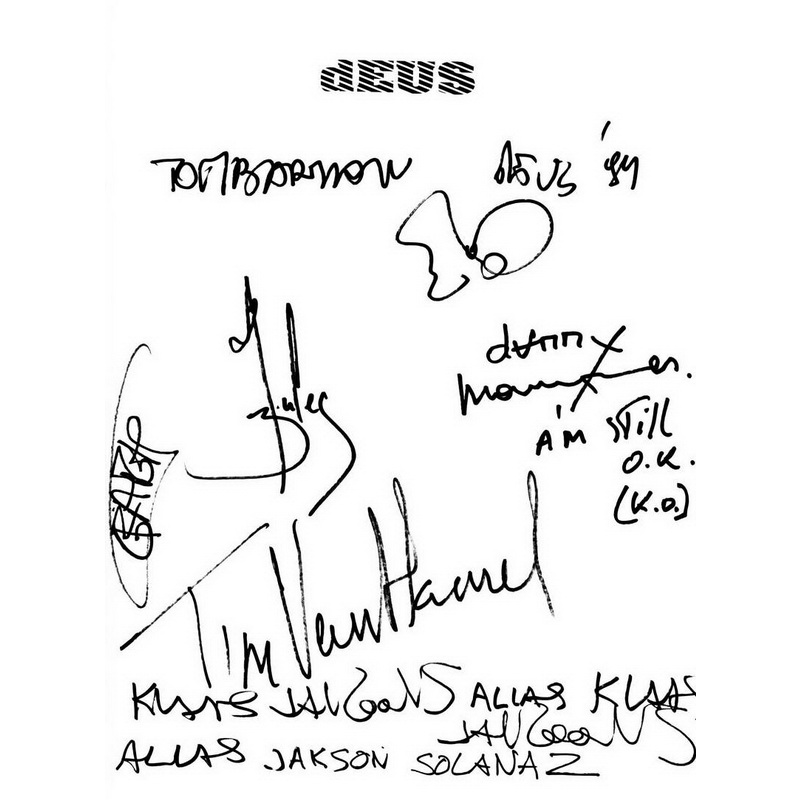 dEUS
TOM BARMAN dEUS '94
Danny
Mommens.
A'M STILL
O.K.
(K.O.)
Jules
Tim Van Hamel
KLAAS JANZOONS ALIAS KLAAS
JANZOONS
ALIAS JAKSON SOLANAZ